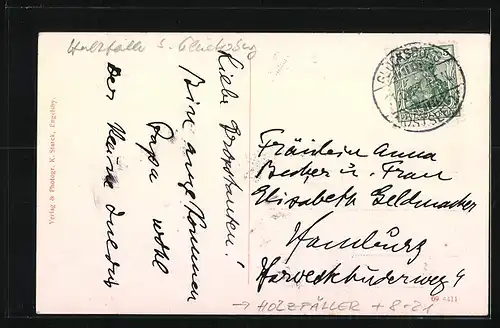 Holzfälle b. Glücksburg
Liebe Grosstanten!
Bin angekommen
Papa wohl
Der kleine
Verlag & Photogr. K. Starck, Engelsby.
GLÜCKSBURG
(OSTSEE)
Fräulein Anna
Becher u. Frau
Elisabeth Geldmacher
Hamburg
Harvestehuderweg 9
09 4411
→ HOLZFÄLLER + 8-21